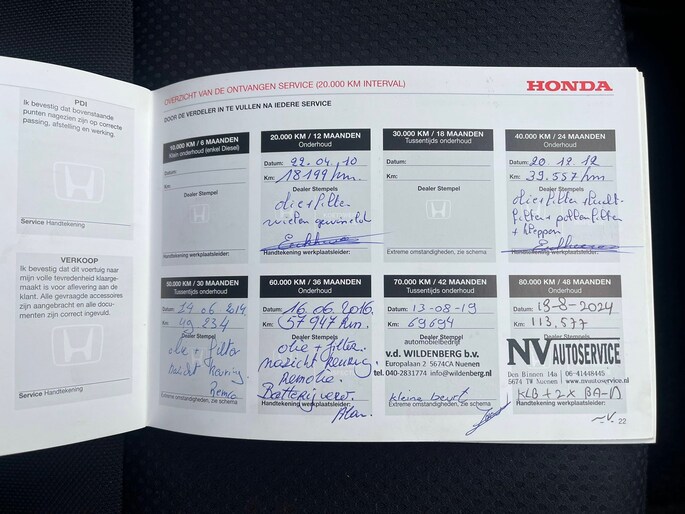 PDI
Ik bevestig dat bovenstaande
punten nagezien zijn op correcte
passing, afstelling en werking.
Service Handtekening
VERKOOP
Ik bevestig dat dit voertuig naar
mijn volle tevredenheid klaarge-
maakt is voor aflevering aan de
klant. Alle gevraagde accessoires
zijn aangebracht en alle docu-
menten zijn correct ingevuld.
Service Handtekening
OVERZICHT VAN DE ONTVANGEN SERVICE (20.000 KM INTERVAL)
HONDA
DOOR DE VERDELER IN TE VULLEN NA IEDERE SERVICE
10.000 KM / 6 MAANDEN
Klein onderhoud (enkel Diesel)
Datum:
Km:
Dealer Stempel
Handtekening werkplaatsleider:
20.000 KM / 12 MAANDEN
Onderhoud
Datum: 22.04.10
Km: 18199 km.
Dealer Stempels
olie + filter
wielen gewisseld
Handtekening werkplaatsleider:
30.000 KM / 18 MAANDEN
Tussentijds onderhoud
Datum:
Km:
Dealer Stempel
Extreme omstandigheden, zie schema
40.000 KM / 24 MAANDEN
Onderhoud
Datum: 20.12.12
Km: 39.557 km
Dealer Stempels
olie + filter + lucht-
filter + pollenfilter
+ kleppen
Handtekening werkplaatsleider:
50.000 KM / 30 MAANDEN
Tussentijds onderhoud
Datum: 24 06 2014
Km: 49 234
Dealer Stempel
olie filter
Keuring
Remco
Extreme omstandigheden, zie schema
60.000 KM / 36 MAANDEN
Onderhoud
Datum: 16.06.2016.
Km: 57947 km.
Dealer Stempels
olie + filter.
nazicht keuring.
Remolie.
Batterij verv.
Handtekening werkplaatsleider:
Alan.
70.000 KM / 42 MAANDEN
Tussentijds onderhoud
Datum: 13-08-19
Km: 69694
automobielbedrijf
v.d. WILDENBERG b.v.
Europalaan 2 5674CA Nuenen
tel. 040-2831774 info@wildenberg.nl
kleine beurt
Extreme omstandigheden, zie schema
80.000 KM / 48 MAANDEN
Onderhoud
Datum: 13-8-2024
Km: 113.577
Dealer Stempels
NV AUTOSERVICE
Den Binnen 14a | 06-41448445
5674 TW Nuenen | www.nvautoservice.nl
KLB + 2x BA-N
Handtekening werkplaatsleider:
22